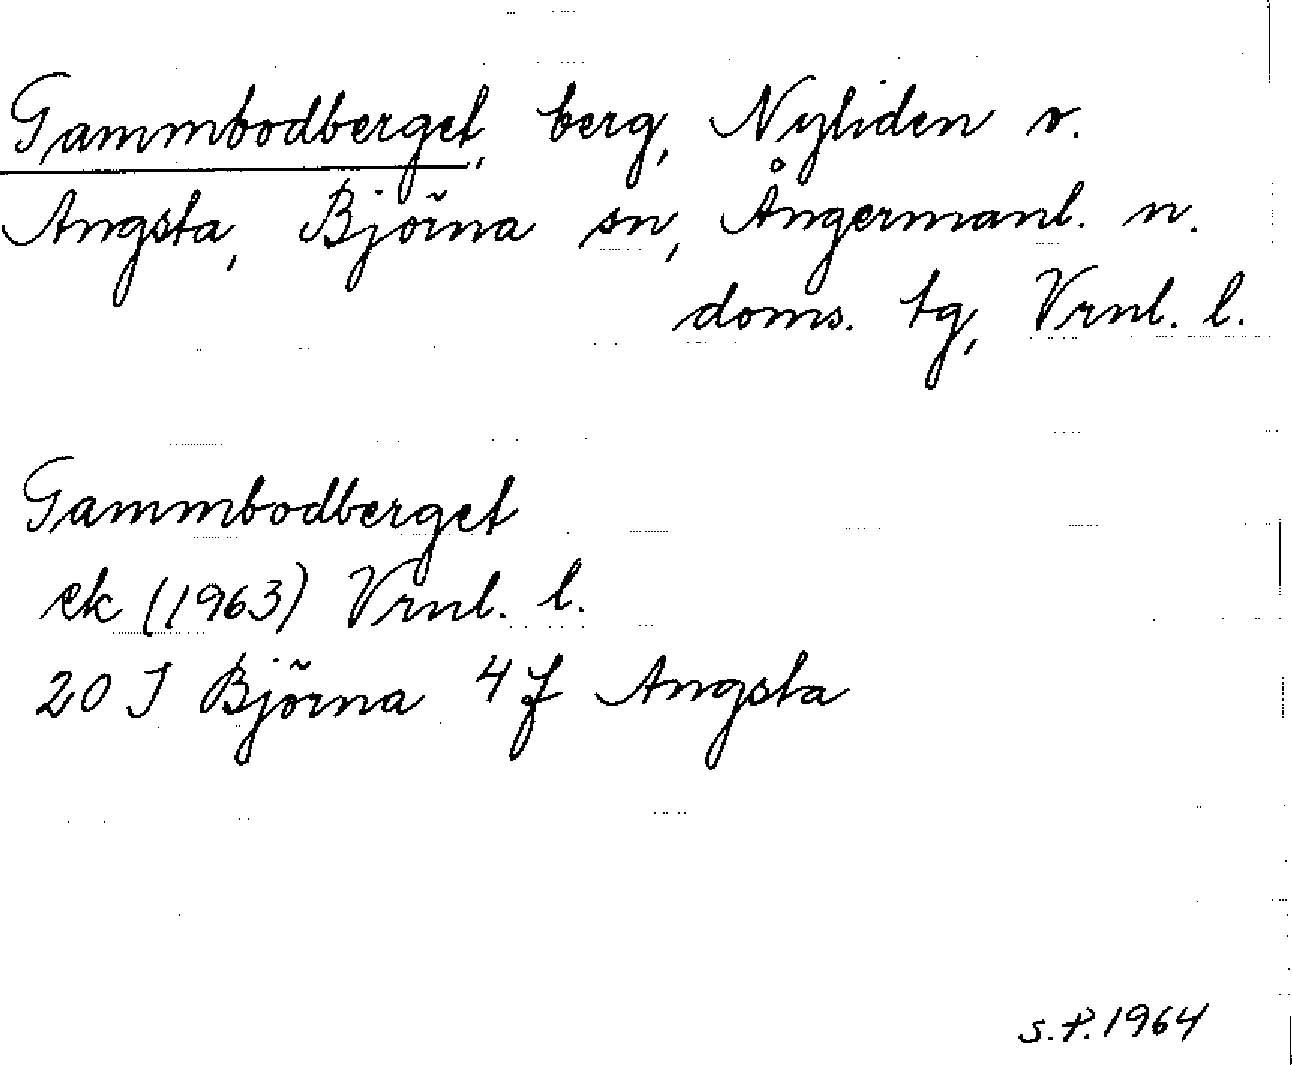 Gammbodberget, berg, Nyliden o.
Angsta, Björna sn, Ångermanl. n.
doms. tg, Vrnl. l.
Gammbodberget
ek (1963) Vrnl. l.
20 J Björna 4 f Angsta
S.P. 1964